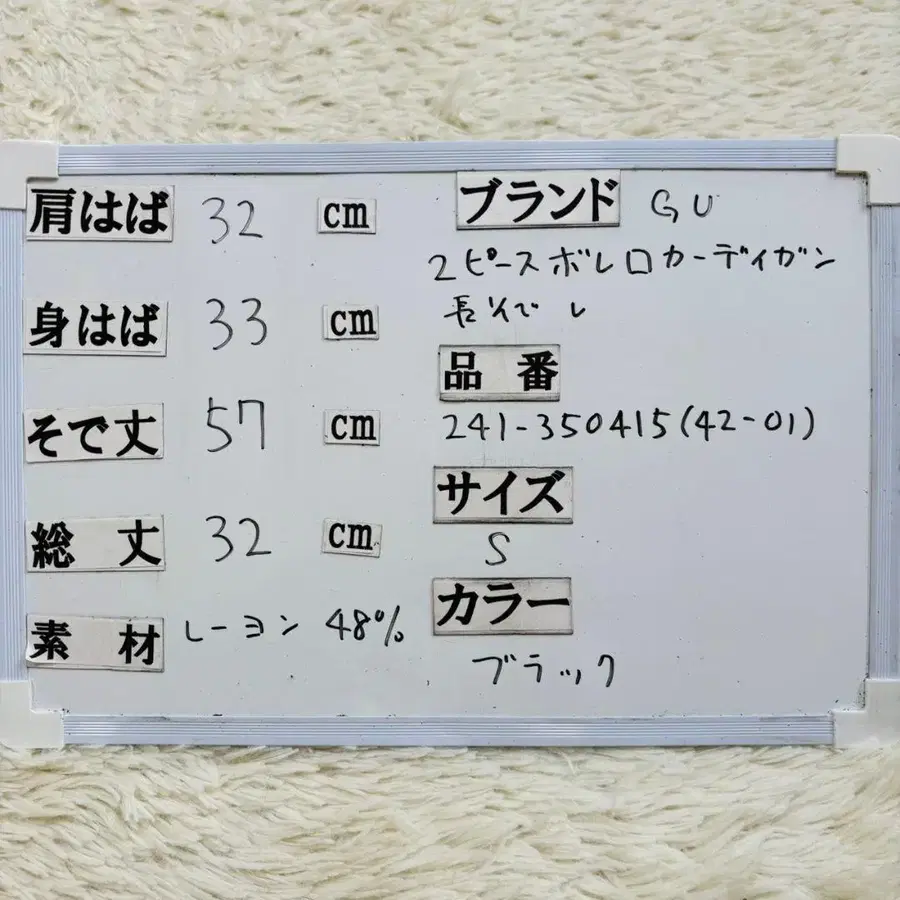 肩はば 32 cm
身はば 33 cm
そで丈 57 cm
総丈 32 cm
素材 レーヨン 48%
ブランド GU
2ピースボレロカーディガン
長そで レ
品番
241-350415(42-01)
サイズ
S
カラー
ブラック